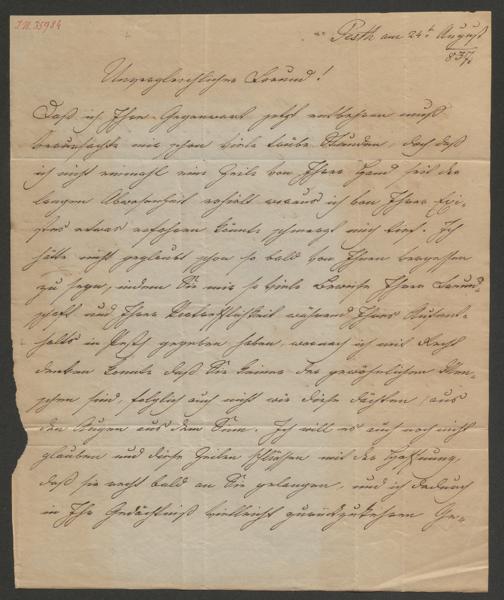 I.N. 35984
Pesth am 24t August
837.
Unvergleichlicher Freund!
Daß ich Ihre Gegenwart jetzt entbehren muß
verursachte mir schon viele trübe Stunden, doch daß
ich nicht einmahl eine Zeile von Ihrer Hand seit der
langen Abwesenheit erhielt woraus ich von Ihrer Exi-
stenz etwas erfahren könnte schmerzt mich tief. Ich
hätte nicht geglaubt schon so bald von Ihnen vergessen
zu seyn, indem Sie mir so viele Beweise Ihrer Freund-
schaft und Ihrer Vortrefflichkeit während Ihres Aufent-
halts in Pesth gegeben haben, wornach ich mit Recht
denken konnte daß Sie keiner der gewöhnlichen Men-
schen sind, folglich auch nicht wie diese dächten, aus
den Augen aus dem Sinn. Ich will es auch noch nicht
glauben und diese Zeilen schlüssen mit der Hoffnung,
daß sie recht bald an Sie gelangen, und ich dadurch
in Ihr Gedächtniß vielleicht zurückzukehren Ge-